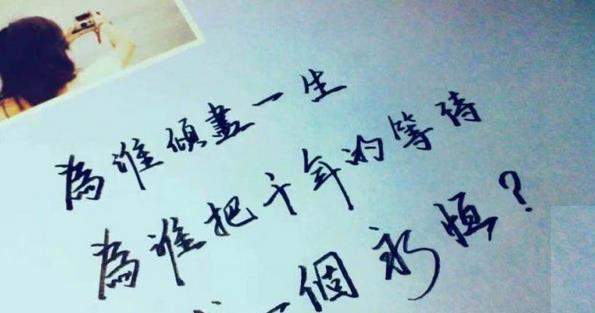 為誰傾畫一生
為誰把千年的等待
一個永恆?